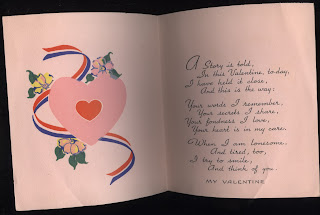 A Story is told,
In this Valentine, to-day,
I have held it close,
And this is the way:
Your words I remember,
Your secrets I share,
Your fondness I love,
Your heart is in my care.
When I am lonesome,
And tired, too,
I try to smile,
And think of you.
MY VALENTINE